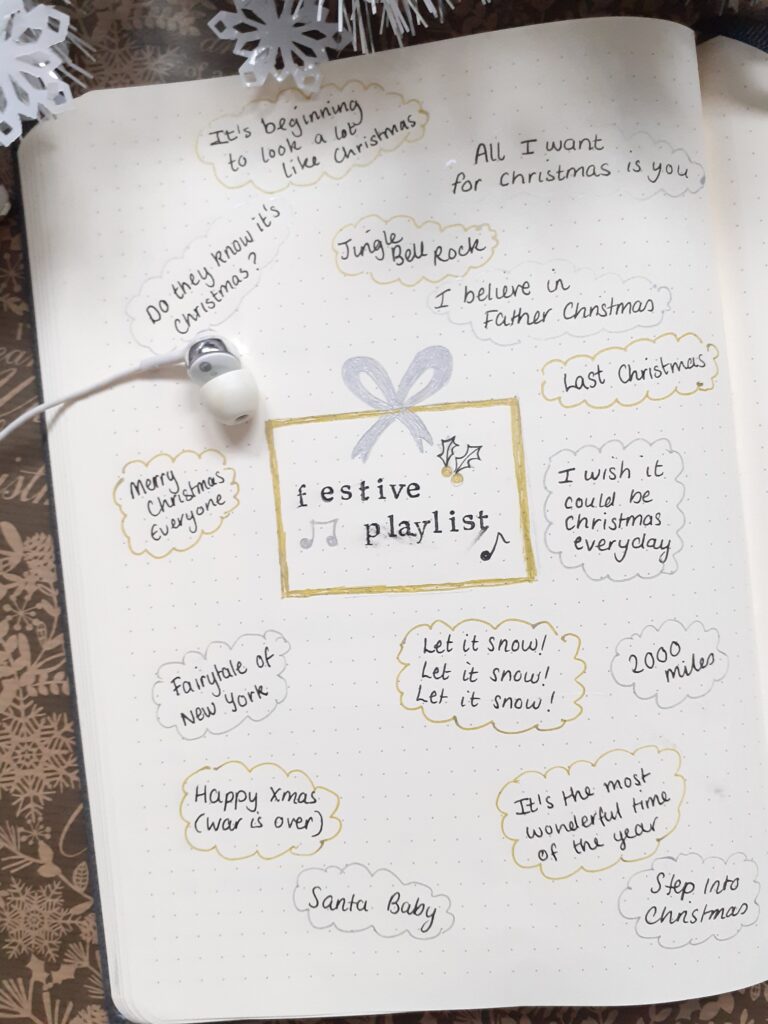 It's beginning
to look a lot
like Christmas
All I want
for Christmas is you
Do they know it's
Christmas?
Jingle
Bell Rock
I believe in
Father Christmas
Last Christmas
Merry
Christmas
Everyone
festive
playlist
I wish it
could be
christmas
everyday
Fairytale of
New York
Let it snow!
Let it snow!
Let it snow!
2000
miles
Happy Xmas
(war is over)
It's the most
wonderful time
of the year
Santa Baby
Step Into
Christmas